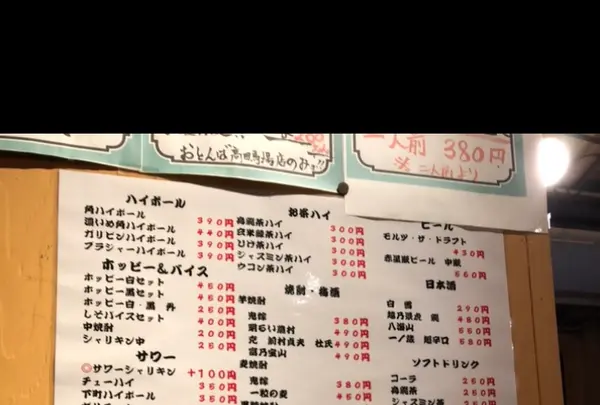 おとんば高田馬場店のみ!!
二人前 380円
※二人前より
ハイボール
角ハイボール 390円
濃いめ角ハイボール 440円
ガリピンハイボール 390円
ブラジャーハイボール 390円
ホッピー&バイス
ホッピー白セット 450円
ホッピー黒セット 450円
ホッピー白・黒 丹 250円
しそバイスセット 400円
中焼酎 200円
シャリキン中 250円
サワー
◎サワーシャリキン +100円
チューハイ 350円
下町ハイボール 350円
お茶ハイ
烏龍茶ハイ 300円
玄米緑茶ハイ 300円
ひけ茶ハイ 300円
ジャスミン茶ハイ 300円
ウコン茶ハイ 300円
焼酎・梅酒
芋焼酎
鬼嫁 380円
明るい農村 490円
克 前村貞夫 杜氏 490円
富乃宝山 490円
麦焼酎
鬼嫁 380円
一粒の麦 450円
ビール
モルツ・ザ・ドラフト
430円
赤星瓶ビール 中瓶
560円
日本酒
白鶴 290円
480円
八海山 550円
一ノ蔵 超辛口 580円
ソフトドリンク
コーラ 250円
烏龍茶 250円
ジャスミン茶 250円